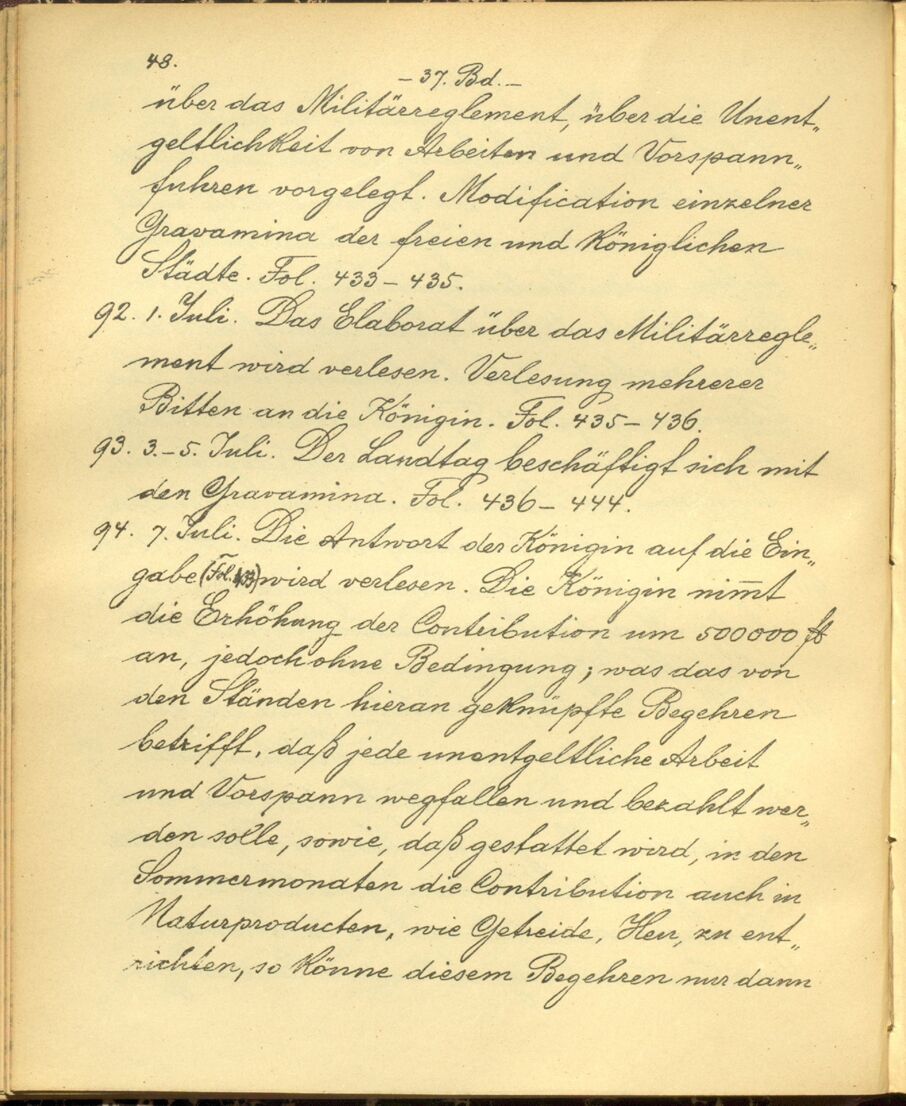 48.
– 37. Bd. –
über das Militärreglement, über die Unent„
geltlichkeit von Arbeiten und Vorspann„
fuhren vorgelegt. Modification einzelner
Gravamina der freien und königlichen
Städte. Fol. 433 – 435.
92. 1. Juli. Das Elaborat über das Militärregle„
ment wird verlesen. Verlesung mehrerer
Bitten an die Königin. Fol. 435 – 436.
93. 3. – 5. Juli. Der Landtag beschäftigt sich mit
den Gravamina. Fol. 436 – 444.
94. 7. Juli. Die Antwort der Königin auf die Ein„
gabe (Fol. ) wird verlesen. Die Königin nim̅t
die Erhöhung der Contribution um 500000 fl
an, jedoch ohne Bedingung; was das von
den Ständen hieran geknüpfte Begehren
betrifft, daß jede unentgeltliche Arbeit
und Vorspann wegfallen und bezahlt wer„
den solle, sowie, daß gestattet wird, in den
Sommermonaten die Contribution auch in
Naturproducten, wie Getreide, Heu, zu ent„
richten, so könne diesem Begehren nur dann